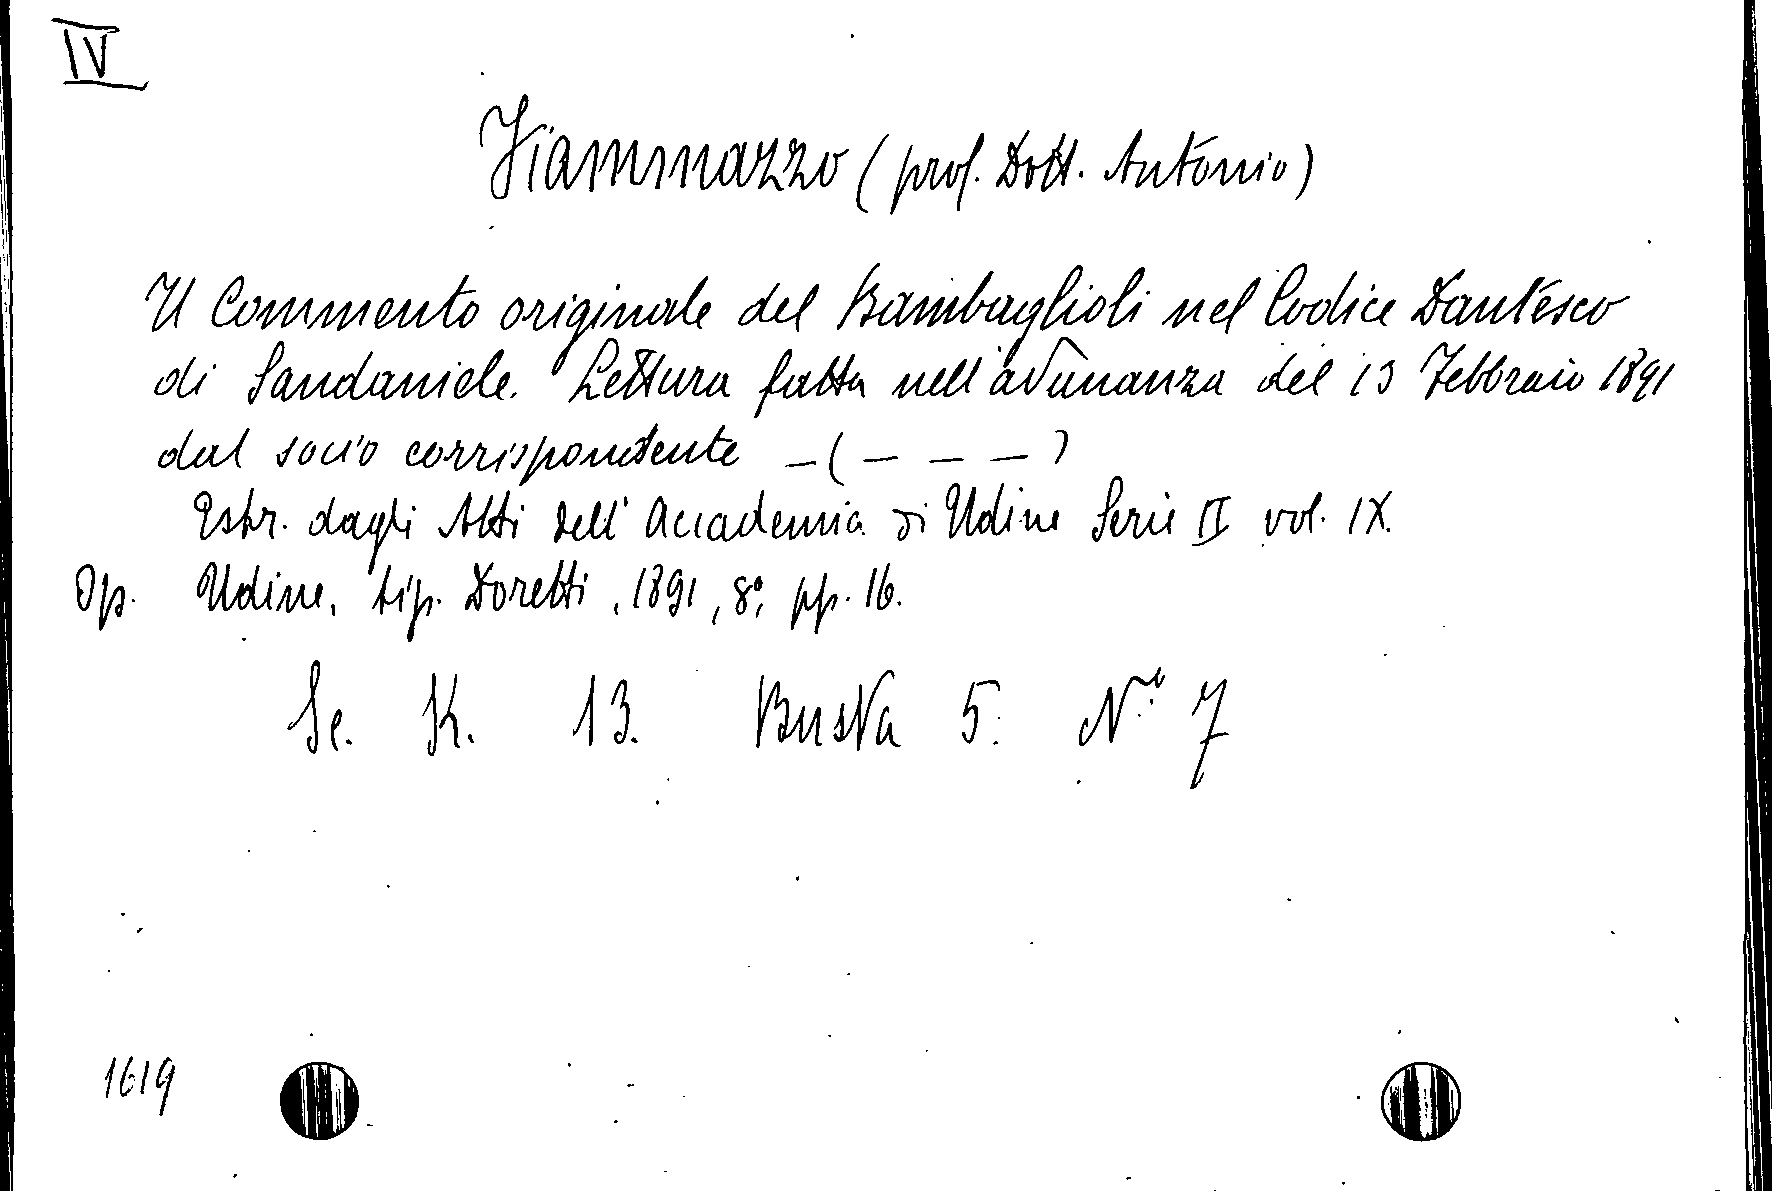 IV
Fiammazzo (prof. Dott. Antonio)
Il Commento originale del Bambaglioli nel Codice Dantesco
di Sandaniele. Lettura fatta nell'adunanza del 13 Febbraio 1891
dal socio corrispondente _ ( _ _ _ )
Estr. dagli Atti dell' Accademia di Udine Serie II vol. IX.
Op. Udine, tip. Doretti, 1891, 8º, pp. 16.
Se. K. 13. Busta 5. Nº 7
1619